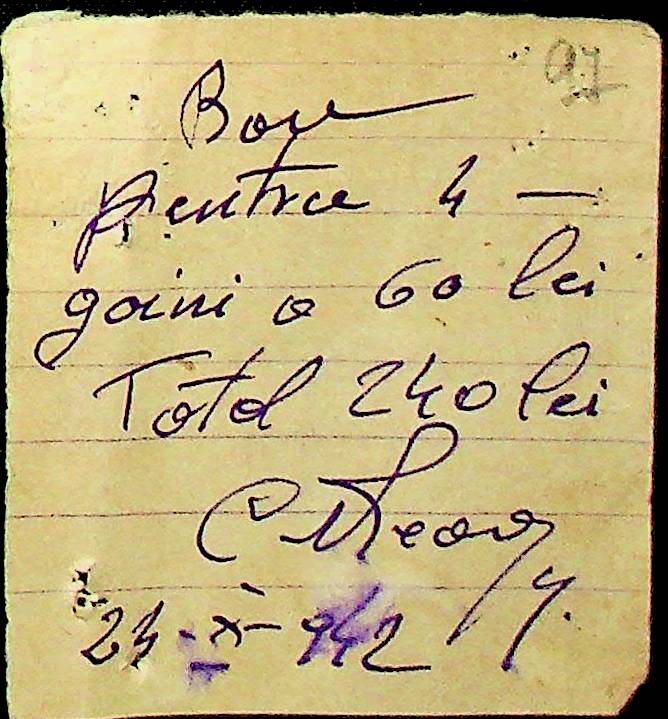 97
Bon
pentru 4 —
gaini a 60 lei
Total 240 lei
24-X-942